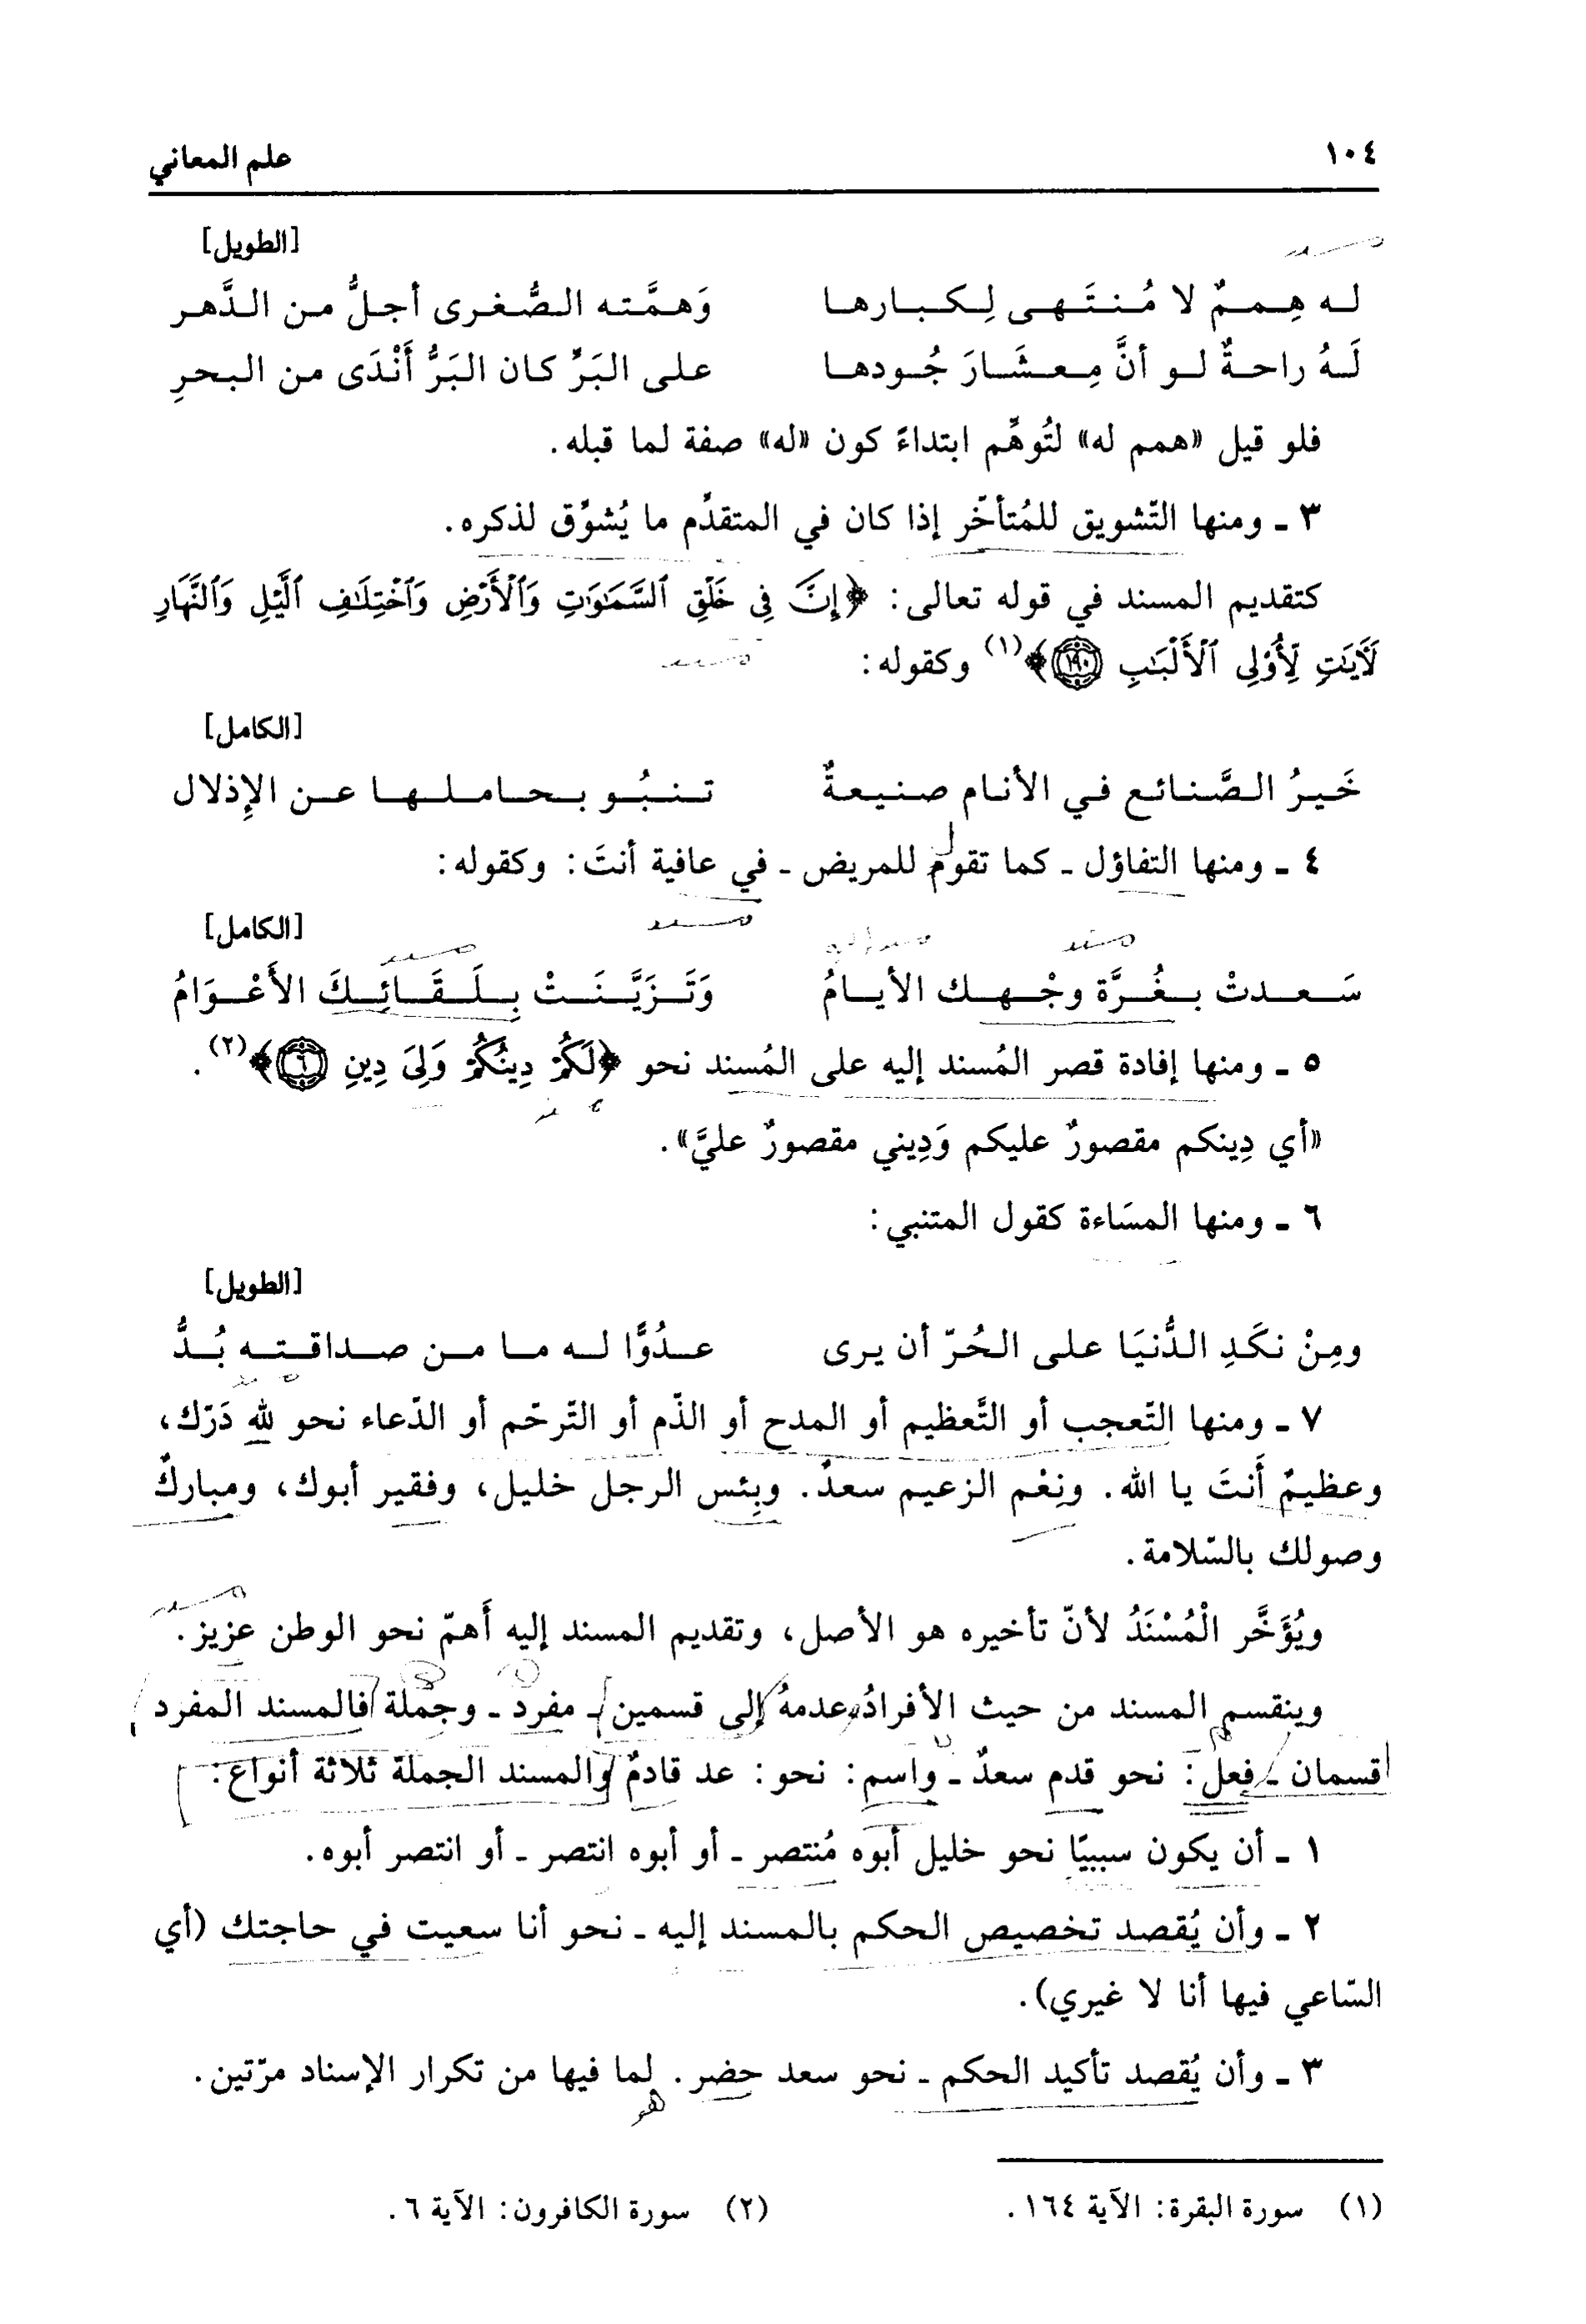 ١٠٤ علم المعاني
مسند
[الطويل]
له هِممٌ لا مُنتَهى لِكبارها وَهمَّته الصُّغرى أجلُّ من الدَّهر
لَهُ راحةٌ لو أنَّ مِعشَارَ جُودها على البَرِّ كان البَرُّ أَنْدَى من البحرِ
فلو قيل «همم له» لتُوهِّم ابتداءً كون «له» صفة لما قبله.
٣ ـ ومنها التّشويق للمُتأخّر إذا كان في المتقدِّم ما يُشوِّق لذكره.
كتقديم المسند في قوله تعالى: ﴿إِنَّ فِى خَلْقِ ٱلسَّمَٰوَٰتِ وَٱلْأَرْضِ وَٱخْتِلَٰفِ ٱلَّيْلِ وَٱلنَّهَارِ
لَءَايَٰتٍ لِّأُو۟لِى ٱلْأَلْبَٰبِ ١٩٠﴾(١) وكقوله:
مسند
[الكامل]
خَيرُ الصَّنائع في الأنام صنيعةٌ تنبُو بحاملها عن الإِذلال
٤ ـ ومنها التفاؤل ـ كما تقوم للمريض ـ في عافية أنتَ: وكقوله:
ل
[الكامل]
مسند مسند إليه مسند مسند
سَعدتْ بغُرَّة وجْهك الأيامُ وَتَزَيَّنَتْ بِلَقَائِكَ الأَعْوَامُ
٥ ـ ومنها إفادة قصر المُسند إليه على المُسند نحو ﴿لَكُمْ دِينُكُمْ وَلِىَ دِينِ ٦﴾(٢).
«أي دِينكم مقصورٌ عليكم وَدِيني مقصورٌ عليَّ».
٦ ـ ومنها المسَاءة كقول المتنبي:
[الطويل]
ومِنْ نكَدِ الدُّنيَا على الحُرّ أن يرى عدُوًّا له ما من صداقته بُدُّ
٧ ـ ومنها التّعجب أو التَّعظيم أو المدح أو الذّم أو التّرحّم أو الدّعاء نحو لله دَرّك،
وعظيمٌ أَنتَ يا الله. ونِعْم الزعيم سعدٌ. وبِئس الرجل خليل، وفقير أبوك، ومباركٌ
وصولك بالسّلامة.
مسند
ويُؤَخَّر الْمُسْنَدُ لأنّ تأخيره هو الأصل، وتقديم المسند إليه أَهمّ نحو الوطن عزيز.
وينقسم المسند من حيث الأفرادُ وعدمهُ إلى قسمين ـ مفرد ـ وجملة فالمسند المفرد
قسمان ـ فعل: نحو قدم سعدٌ ـ واسم: نحو: عد قادمٌ والمسند الجملة ثلاثة أنواع:
١ ـ أن يكون سببيًا نحو خليل أبوه مُنتصر ـ أو أبوه انتصر ـ أو انتصر أبوه.
٢ ـ وأن يُقصد تخصيص الحكم بالمسند إليه ـ نحو أنا سعيت في حاجتك (أي
السّاعي فيها أنا لا غيري).
٣ ـ وأن يُقصد تأكيد الحكم ـ نحو سعد حضر. لما فيها من تكرار الإسناد مرّتين.
هو
(١) سورة البقرة: الآية ١٦٤. (٢) سورة الكافرون: الآية ٦.